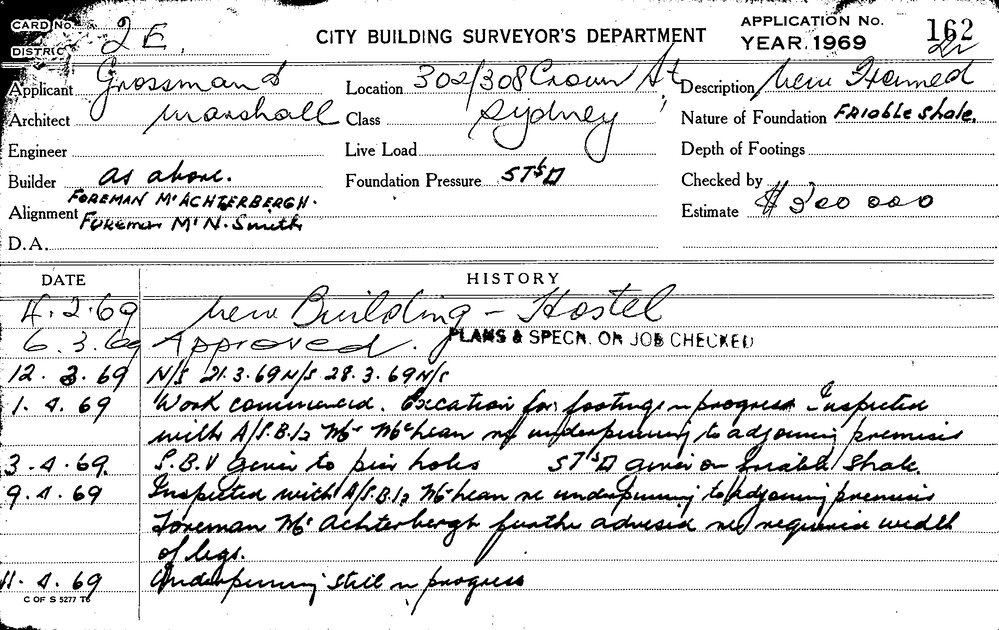 CARD No.
DISTRICT 2 E.
CITY BUILDING SURVEYOR'S DEPARTMENT
APPLICATION No. 162
YEAR. 1969
Applicant Grossman &
Location 302/308 Crown St
Description New Framed
Architect Marshall
Class Sydney
Nature of Foundation Friable Shale.
Engineer
Live Load
Depth of Footings
Builder as above.
Foundation Pressure 5T'S □
Checked by
FOREMAN Mr ACHTERBERGH.
Alignment Foreman Mr N. Smith
Estimate $ 200 000
D.A.
DATE HISTORY
4.2.69 New Building - Hostel
6.3.69 Approved. PLANS & SPECN. ON JOB CHECKED
12.3.69 N/S 21.3.69 N/S 28.3.69 N/S
1.4.69 Work commenced. Excation for footings n progress Inspected
with A/S.B.I. Mr McLean re underpinning to adjoining premisis
3.4.69 S.B.V given to pier holes 5T'S □ given on friable shale.
9.4.69 Inspected with A/S.B.I. McLean re underpinning to Adjoining premisis
Foreman Mr Achterbergh further advised re required width
of legs.
11.4.69 Underpinning still n progress
C OF S 5277 T6